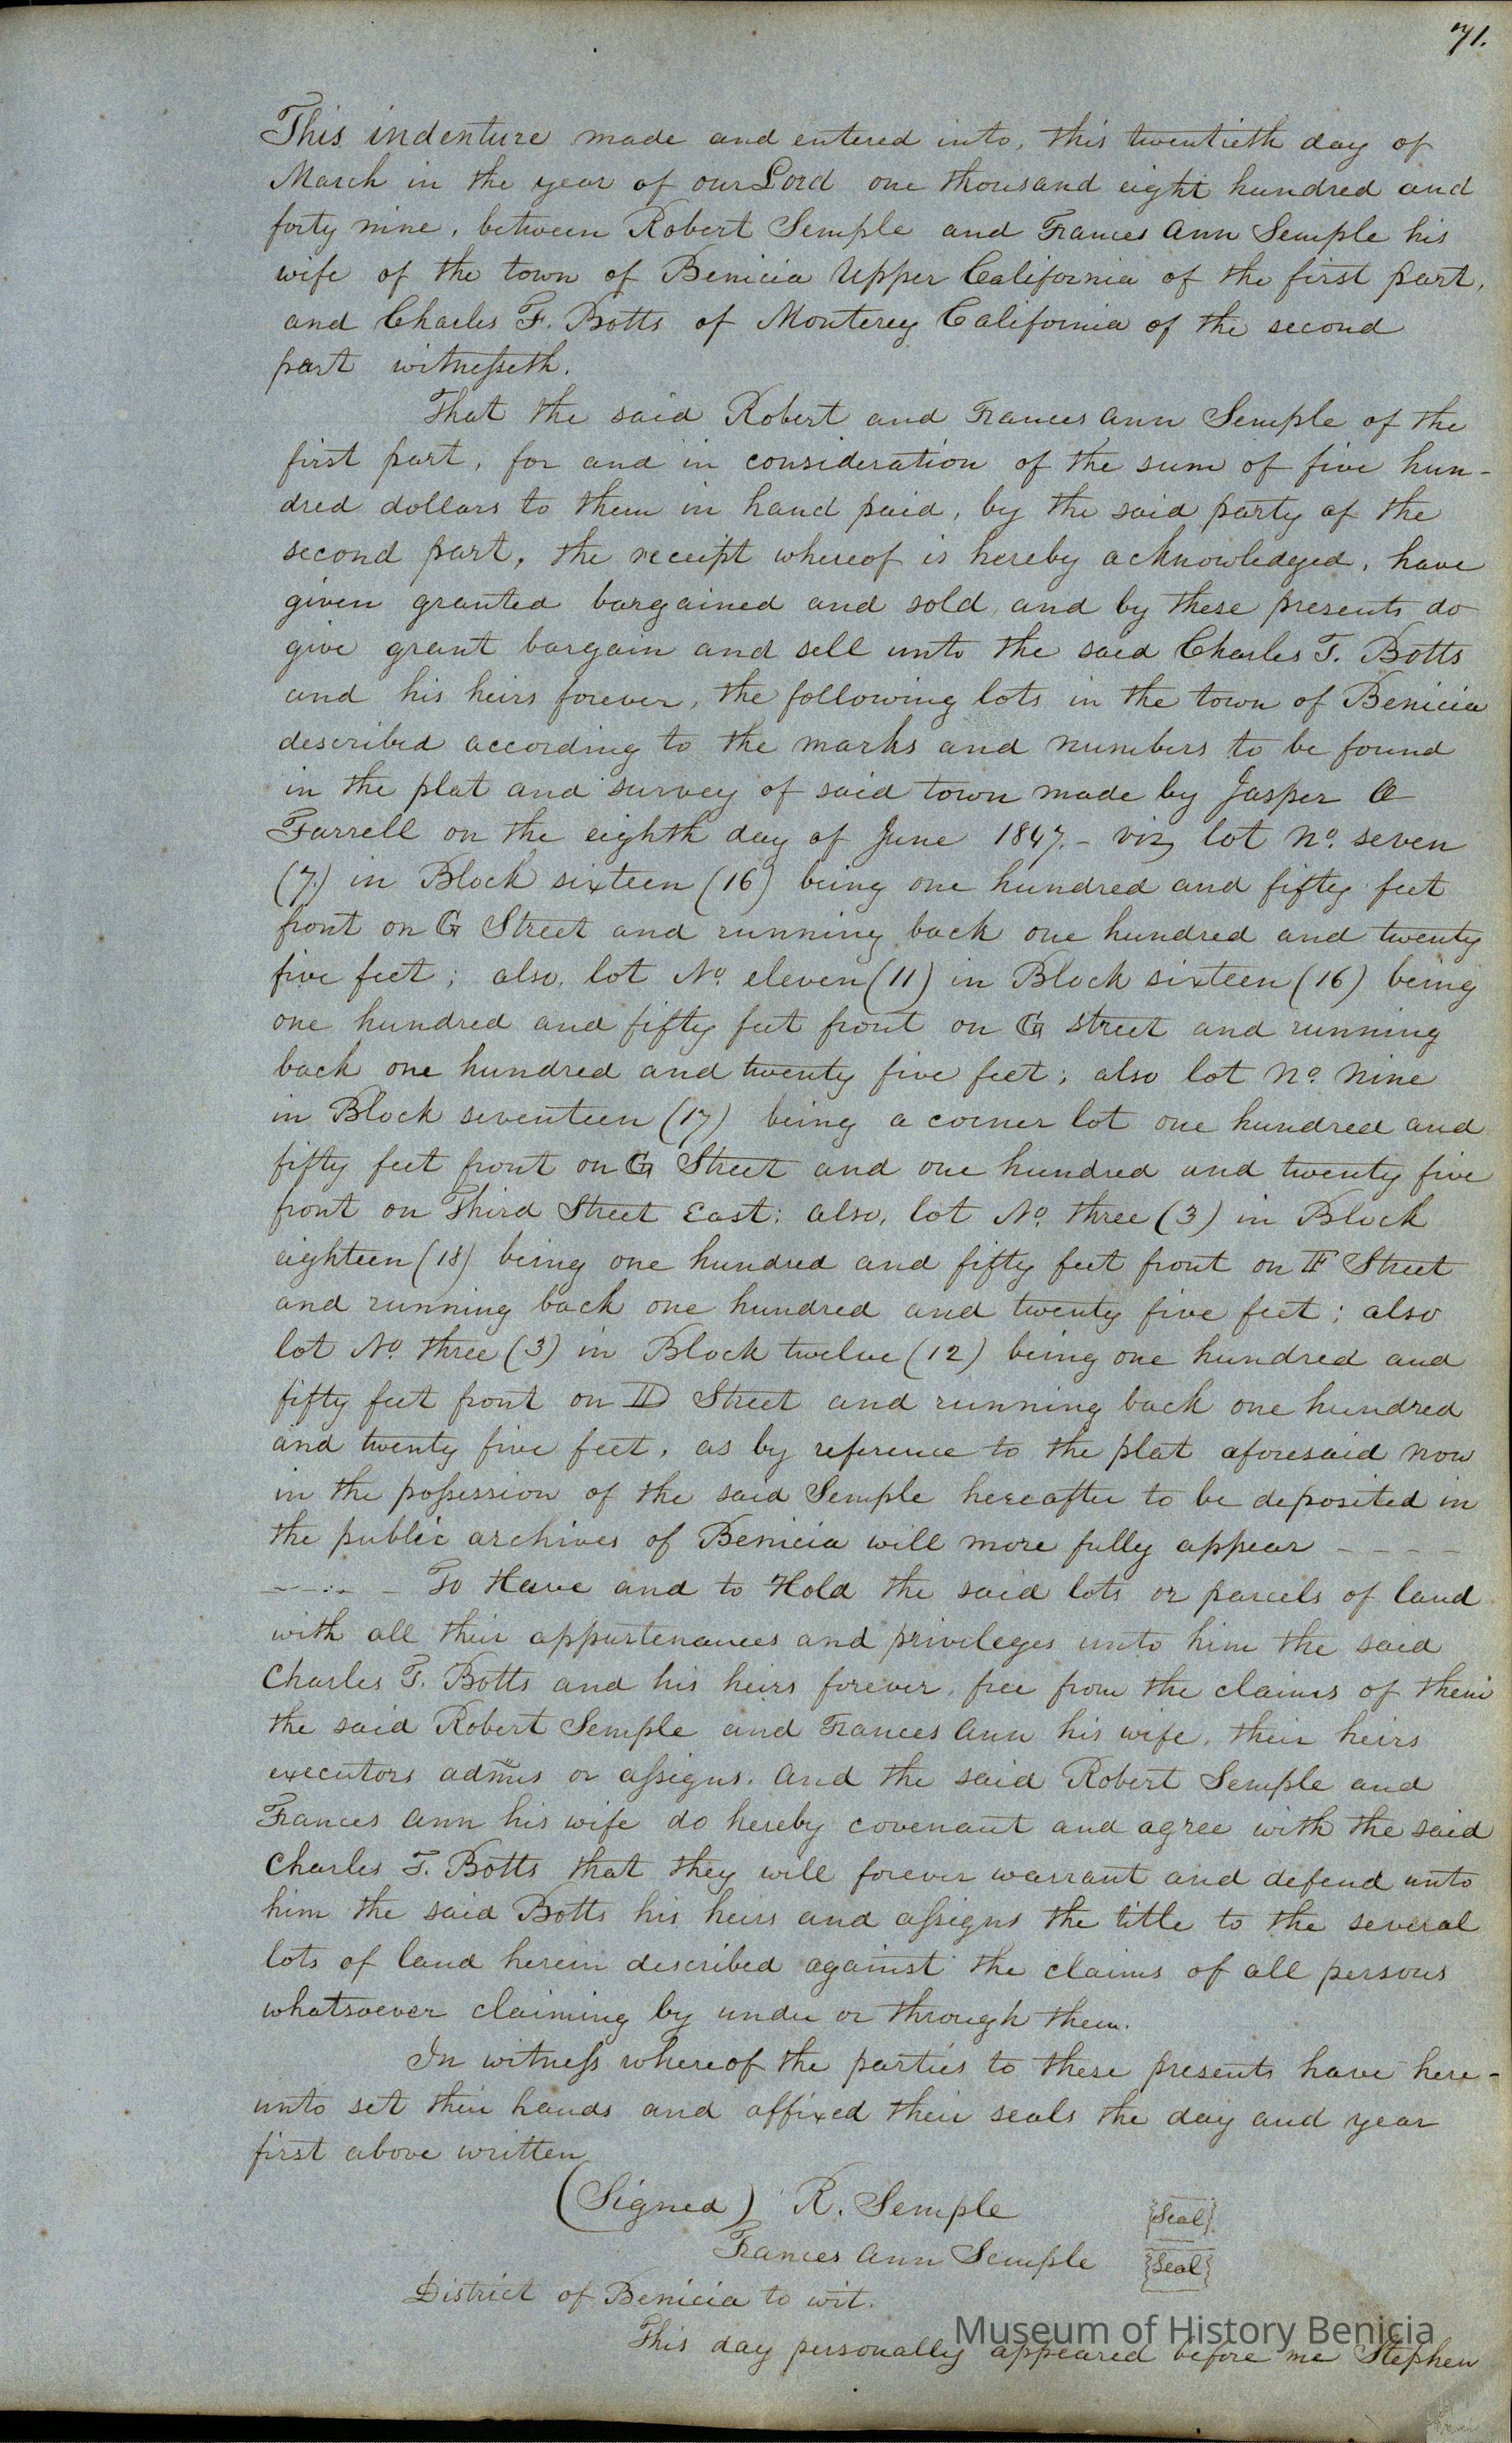 71.
This indenture made and entered into, this twentieth day of
March in the year of our Lord one thousand eight hundred and
forty nine, between Robert Semple and Frances Ann Semple his
wife of the town of Benicia Upper California of the first part,
and Charles F. Botts of Monterey California of the second
part witneſseth.
That the said Robert and Frances Ann Semple of the
first part, for and in consideration of the sum of five hun-
dred dollars to them in hand paid, by the said party of the
second part, the receipt whereof is hereby acknowledged, have
given granted bargained and sold and by these presents do
give grant bargain and sell unto the said Charles T. Botts
and his heirs forever, the following lots in the town of Benicia
described according to the marks and numbers to be found
in the plat and survey of said town made by Jasper O
Farrell on the eighth day of June 1847. - viz lot No. seven
(7.) in Block sixteen (16) being one hundred and fifty feet
front on G Street and running back one hundred and twenty
five feet; also, lot No. eleven (11) in Block sixteen (16) being
one hundred and fifty feet front on G street and running
back one hundred and twenty five feet; also lot No. nine
in Block seventeen (17) being a corner lot one hundred and
fifty feet front on G Street and one hundred and twenty five
front on Third Street East; also, lot No. three (3) in Block
eighteen (18) being one hundred and fifty feet front on F Street
and running back one hundred and twenty five feet; also
lot No. three (3) in Block twelve (12) being one hundred and
fifty feet front on D Street and running back one hundred
and twenty five feet, as by reference to the plat aforesaid now
in the poſsession of the said Semple hereafter to be deposited in
the public archives of Benicia will more fully appear - - - -
- - - - To Have and to Hold the said lots or parcels of land
with all their appurtenances and privileges unto him the said
Charles T. Botts and his heirs forever, free from the claims of them
the said Robert Semple and Frances Ann his wife, their heirs
executors admrs or aſsigns. And the said Robert Semple and
Frances Ann his wife do hereby covenant and agree with the said
Charles T. Botts that they will forever warrant and defend unto
him the said Botts his heirs and aſsigns the title to the several
lots of land herein described against the claims of all persons
whatsoever claiming by under or through them.
In witneſs whereof the parties to these presents have here-
unto set their hands and affixed their seals the day and year
first above written
(Signed) R. Semple {Seal}
Frances Ann Semple {Seal}
District of Benicia to wit.
This day personally appeared before me Stephen
Museum of History Benicia